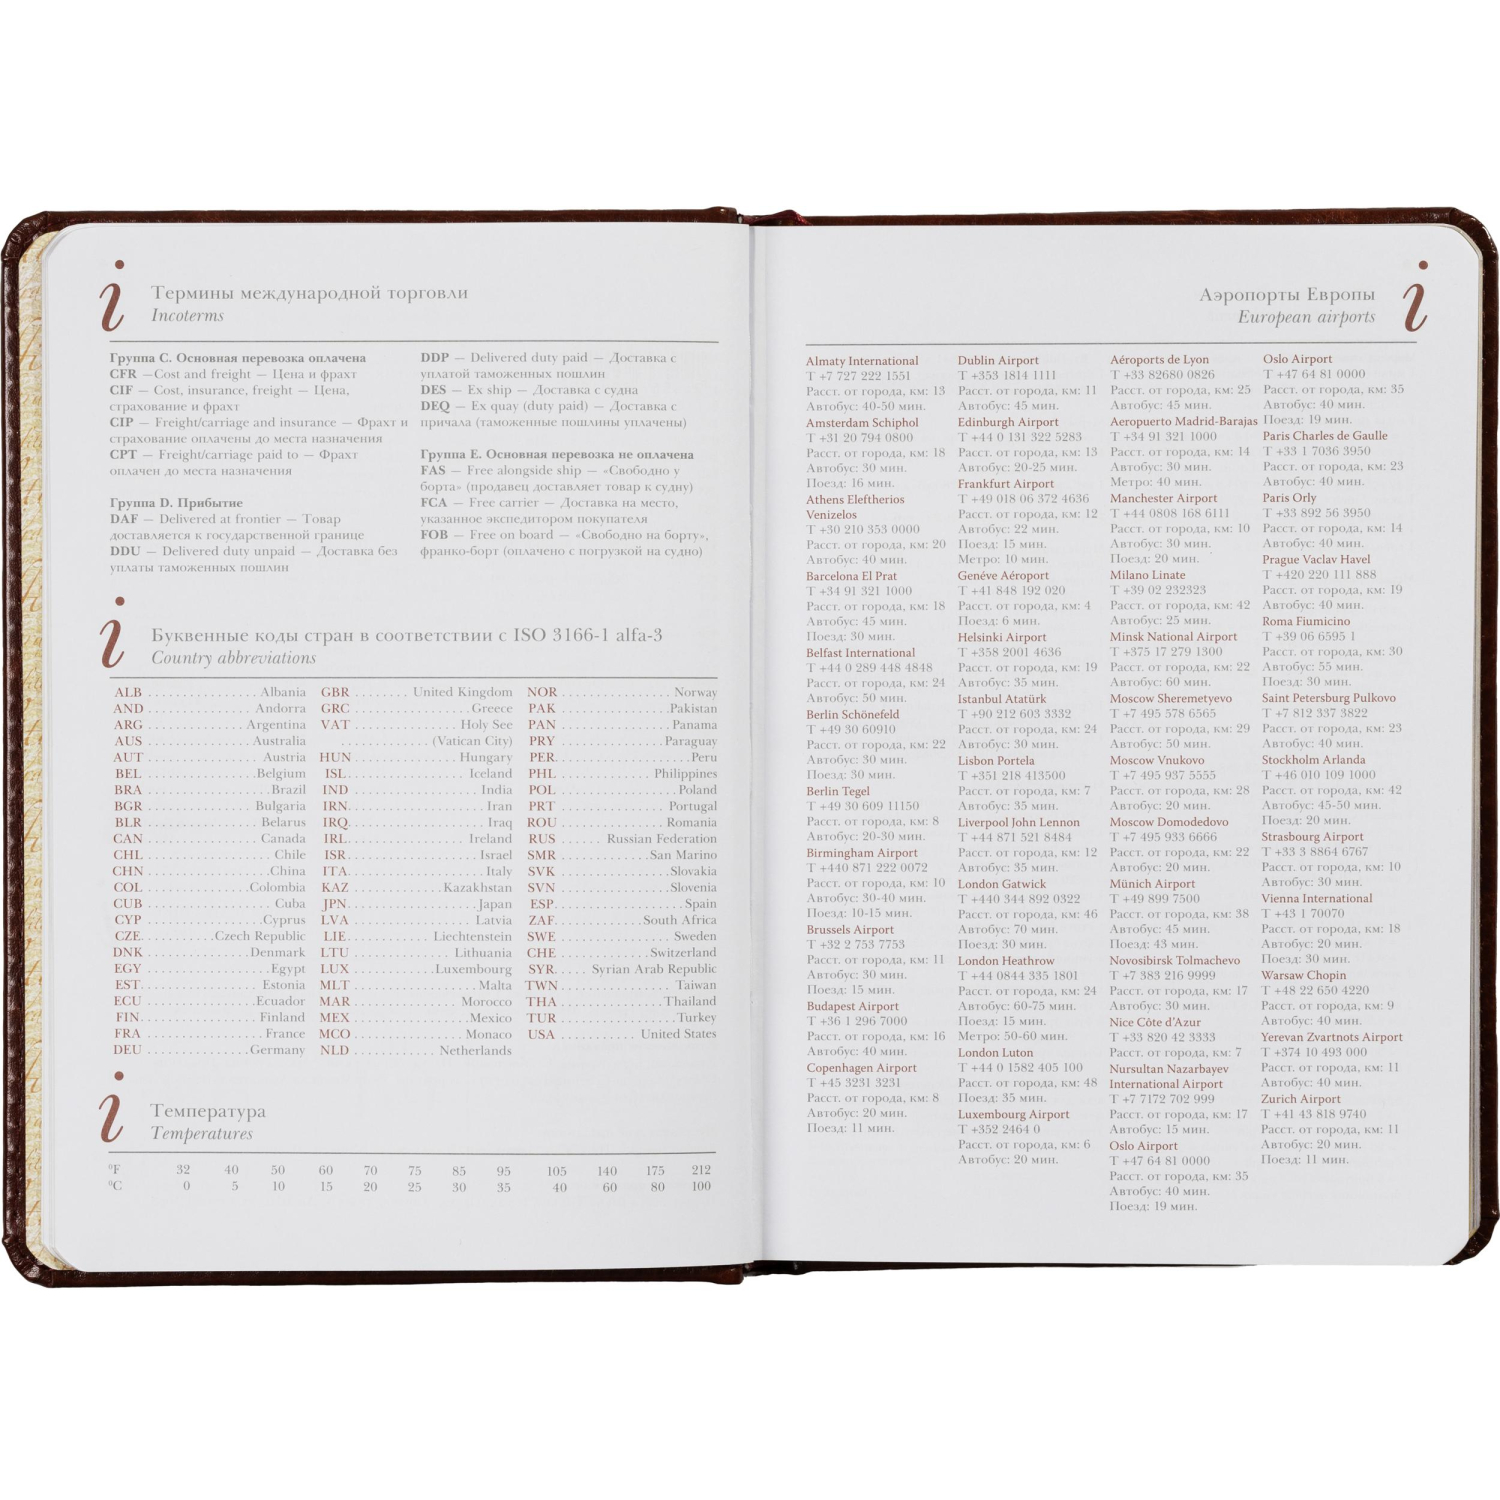 i
Термины международной торговли
Incoterms
Группа C. Основная перевозка оплачена
CFR —Cost and freight — Цена и фрахт
CIF — Cost, insurance, freight — Цена,
страхование и фрахт
CIP — Freight/carriage and insurance — Фрахт и
страхование оплачены до места назначения
CPT — Freight/carriage paid to — Фрахт
оплачен до места назначения
Группа D. Прибытие
DAF — Delivered at frontier — Товар
доставляется к государственной границе
DDU — Delivered duty unpaid — Доставка без
уплаты таможенных пошлин
DDP — Delivered duty paid — Доставка с
уплатой таможенных пошлин
DES — Ex ship — Доставка с судна
DEQ — Ex quay (duty paid) — Доставка с
причала (таможенные пошлины уплачены)
Группа E. Основная перевозка не оплачена
FAS — Free alongside ship — «Свободно у
борта» (продавец доставляет товар к судну)
FCA — Free carrier — Доставка на место,
указанное экспедитором покупателя
FOB — Free on board — «Свободно на борту»,
франко-борт (оплачено с погрузкой на судно)
i
Буквенные коды стран в соответствии с ISO 3166-1 alfa-3
Country abbreviations
ALB Albania
AND Andorra
ARG Argentina
AUS Australia
AUT Austria
BEL Belgium
BRA Brazil
BGR Bulgaria
BLR Belarus
CAN Canada
CHL Chile
CHN China
COL Colombia
CUB Cuba
CYP Cyprus
CZE Czech Republic
DNK Denmark
EGY Egypt
EST Estonia
ECU Ecuador
FIN Finland
FRA France
DEU Germany
GBR United Kingdom
GRC Greece
VAT Holy See
(Vatican City)
HUN Hungary
ISL Iceland
IND India
IRN Iran
IRQ Iraq
IRL Ireland
ISR Israel
ITA Italy
KAZ Kazakhstan
JPN Japan
LVA Latvia
LIE Liechtenstein
LTU Lithuania
LUX Luxembourg
MLT Malta
MAR Morocco
MEX Mexico
MCO Monaco
NLD Netherlands
NOR Norway
PAK Pakistan
PAN Panama
PRY Paraguay
PER Peru
PHL Philippines
POL Poland
PRT Portugal
ROU Romania
RUS Russian Federation
SMR San Marino
SVK Slovakia
SVN Slovenia
ESP Spain
ZAF South Africa
SWE Sweden
CHE Switzerland
SYR Syrian Arab Republic
TWN Taiwan
THA Thailand
TUR Turkey
USA United States
i
Температура
Temperatures
°F 32 40 50 60 70 75 85 95 105 140 175 212
°C 0 5 10 15 20 25 30 35 40 60 80 100
Аэропорты Европы
European airports
i
Almaty International
T +7 727 222 1551
Расст. от города, км: 13
Автобус: 40-50 мин.
Amsterdam Schiphol
T +31 20 794 0800
Расст. от города, км: 18
Автобус: 30 мин.
Поезд: 16 мин.
Athens Eleftherios
Venizelos
T +30 210 353 0000
Расст. от города, км: 20
Автобус: 40 мин.
Barcelona El Prat
T +34 91 321 1000
Расст. от города, км: 18
Автобус: 45 мин.
Поезд: 30 мин.
Belfast International
T +44 0 289 448 4848
Расст. от города, км: 24
Автобус: 50 мин.
Berlin Schönefeld
T +49 30 60910
Расст. от города, км: 22
Автобус: 30 мин.
Поезд: 30 мин.
Berlin Tegel
T +49 30 609 11150
Расст. от города, км: 8
Автобус: 20-30 мин.
Birmingham Airport
T +440 871 222 0072
Расст. от города, км: 10
Автобус: 30-40 мин.
Поезд: 10-15 мин.
Brussels Airport
T +32 2 753 7753
Расст. от города, км: 11
Автобус: 30 мин.
Поезд: 15 мин.
Budapest Airport
T +36 1 296 7000
Расст. от города, км: 16
Автобус: 40 мин.
Copenhagen Airport
T +45 3231 3231
Расст. от города, км: 8
Автобус: 20 мин.
Поезд: 11 мин.
Dublin Airport
T +353 1814 1111
Расст. от города, км: 11
Автобус: 45 мин.
Edinburgh Airport
T +44 0 131 322 5283
Расст. от города, км: 13
Автобус: 20-25 мин.
Frankfurt Airport
T +49 018 06 372 4636
Расст. от города, км: 12
Автобус: 22 мин.
Поезд: 15 мин.
Метро: 10 мин.
Genéve Aéroport
T +41 848 192 020
Расст. от города, км: 4
Поезд: 6 мин.
Helsinki Airport
T +358 2001 4636
Расст. от города, км: 19
Автобус: 35 мин.
Istanbul Atatürk
T +90 212 603 3332
Расст. от города, км: 24
Автобус: 30 мин.
Lisbon Portela
T +351 218 413500
Расст. от города, км: 7
Автобус: 35 мин.
Liverpool John Lennon
T +44 871 521 8484
Расст. от города, км: 12
Автобус: 35 мин.
London Gatwick
T +440 344 892 0322
Расст. от города, км: 46
Автобус: 70 мин.
Поезд: 30 мин.
London Heathrow
T +44 0844 335 1801
Расст. от города, км: 24
Автобус: 60-75 мин.
Поезд: 15 мин.
Метро: 50-60 мин.
London Luton
T +44 0 1582 405 100
Расст. от города, км: 48
Поезд: 35 мин.
Luxembourg Airport
T +352 2464 0
Расст. от города, км: 6
Автобус: 20 мин.
Aéroports de Lyon
T +33 82680 0826
Расст. от города, км: 25
Автобус: 45 мин.
Aeropuerto Madrid-Barajas
T +34 91 321 1000
Расст. от города, км: 14
Автобус: 30 мин.
Метро: 40 мин.
Manchester Airport
T +44 0808 168 6111
Расст. от города, км: 10
Автобус: 30 мин.
Поезд: 20 мин.
Milano Linate
T +39 02 232323
Расст. от города, км: 42
Автобус: 25 мин.
Minsk National Airport
T +375 17 279 1300
Расст. от города, км: 22
Автобус: 60 мин.
Moscow Sheremetyevo
T +7 495 578 6565
Расст. от города, км: 29
Автобус: 50 мин.
Moscow Vnukovo
T +7 495 937 5555
Расст. от города, км: 28
Автобус: 20 мин.
Moscow Domodedovo
T +7 495 933 6666
Расст. от города, км: 22
Автобус: 20 мин.
Münich Airport
T +49 899 7500
Расст. от города, км: 38
Автобус: 45 мин.
Поезд: 43 мин.
Novosibirsk Tolmachevo
T +7 383 216 9999
Расст. от города, км: 17
Автобус: 30 мин.
Nice Côte d'Azur
T +33 820 42 3333
Расст. от города, км: 7
Nursultan Nazarbayev
International Airport
T +7 7172 702 999
Расст. от города, км: 17
Автобус: 15 мин.
Oslo Airport
T +47 64 81 0000
Расст. от города, км: 35
Автобус: 40 мин.
Поезд: 19 мин.
Oslo Airport
T +47 64 81 0000
Расст. от города, км: 35
Автобус: 40 мин.
Поезд: 19 мин.
Paris Charles de Gaulle
T +33 1 7036 3950
Расст. от города, км: 23
Автобус: 40 мин.
Paris Orly
T +33 892 56 3950
Расст. от города, км: 14
Автобус: 40 мин.
Prague Vaclav Havel
T +420 220 111 888
Расст. от города, км: 19
Автобус: 40 мин.
Roma Fiumicino
T +39 06 6595 1
Расст. от города, км: 30
Автобус: 55 мин.
Поезд: 30 мин.
Saint Petersburg Pulkovo
T +7 812 337 3822
Расст. от города, км: 23
Автобус: 40 мин.
Stockholm Arlanda
T +46 010 109 1000
Расст. от города, км: 42
Автобус: 45-50 мин.
Поезд: 20 мин.
Strasbourg Airport
T +33 3 8864 6767
Расст. от города, км: 10
Автобус: 30 мин.
Vienna International
T +43 1 70070
Расст. от города, км: 18
Автобус: 20 мин.
Поезд: 30 мин.
Warsaw Chopin
T +48 22 650 4220
Расст. от города, км: 9
Автобус: 40 мин.
Yerevan Zvartnots Airport
T +374 10 493 000
Расст. от города, км: 11
Автобус: 40 мин.
Zurich Airport
T +41 43 818 9740
Расст. от города, км: 11
Автобус: 20 мин.
Поезд: 11 мин.